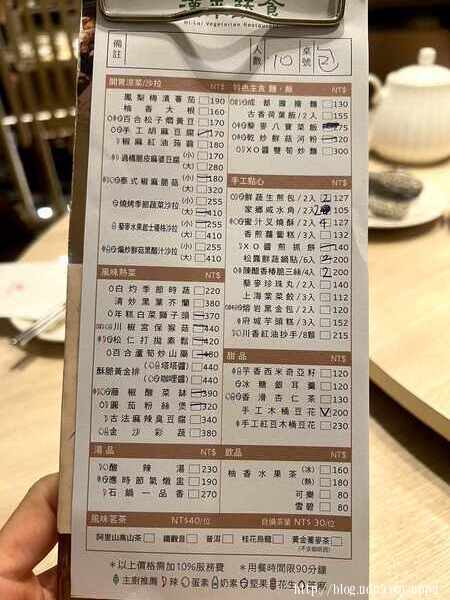 漢來蔬食
Hi-Lai Vegetarian Restaurant
備註
人數 10 桌號 包
開胃涼菜/沙拉 NT$
鳳梨梅漬蕃茄 190
柚香大根 160
百合松子燜黃豆 170
手工胡麻豆腐 170
椒麻紅油蒟蒻 180
過橋脆皮麻婆豆腐 (小) 170
(大) 280
泰式椒麻脆菇 (小) 180
(大) 320
燒烤季節蔬菜沙拉 (小) 255
(大) 410
藜麥水果起士優格沙拉 (小) 255
(大) 410
爐炒鮮菇果醋汁沙拉 (小) 255
(大) 410
風味熱菜 NT$
白灼季節時蔬 220
清炒黑葉芥蘭 380
年糕白菜獅子頭 370
川椒宮保猴菇 440
松仁打拋素鬆 420
百合蘆筍炒山藥 480
酥脆黃金排 (塔塔醬) 440
(咖哩醬) 440
藤椒酸菜缽 390
圍茄粉絲煲 320
古法麻辣臭豆腐 340
金沙彩蔬 380
湯品 NT$
酸辣湯 230
應時節氣燉盅 190
石鍋一品香 270
特色主食 麵、飯 NT$
成都擔擔麵 130
古香荷葉飯/2入 155
藜麥八寶菜飯 175
乾炒鮮菇河粉 320
XO醬雙筍炒麵 300
手工點心 NT$
鮮蔬生煎包/2入 2 127
家鄉咸水角/2入 2 105
蜜汁叉燒酥/2入 127
香煎蘿蔔糕/3入 132
XO醬煎抓餅 140
松露鮮蔬鍋貼/6入 200
陳醋香椿脆三絲/4入 200
藜麥珍珠丸/2入 140
上海菜菜餃/3入 112
熔岩黑金包/2入 120
府城芋頭糕/3入 152
川香紅油抄手/8顆 215
甜品 NT$
芋香西米奇亞籽 120
冰糖銀耳羹 120
香滑杏仁茶 130
手工木桶豆花 V 200
手工紅豆木桶豆花 230
飲品 NT$
柚香水果茶 (冰) 160
(熱) 180
可樂 80
雪碧 80
風味茗茶 NT$40/位 自備茶葉 NT$ 30/位
阿里山高山茶 鐵觀音 普洱 桂花烏龍 黃金蕎麥茶
(不含咖啡因)
*以上價格需加10%服務費 *用餐時間限90分鐘
主廚推薦 辣 蛋素 奶素 堅果 花生
http://blog.udn.com/